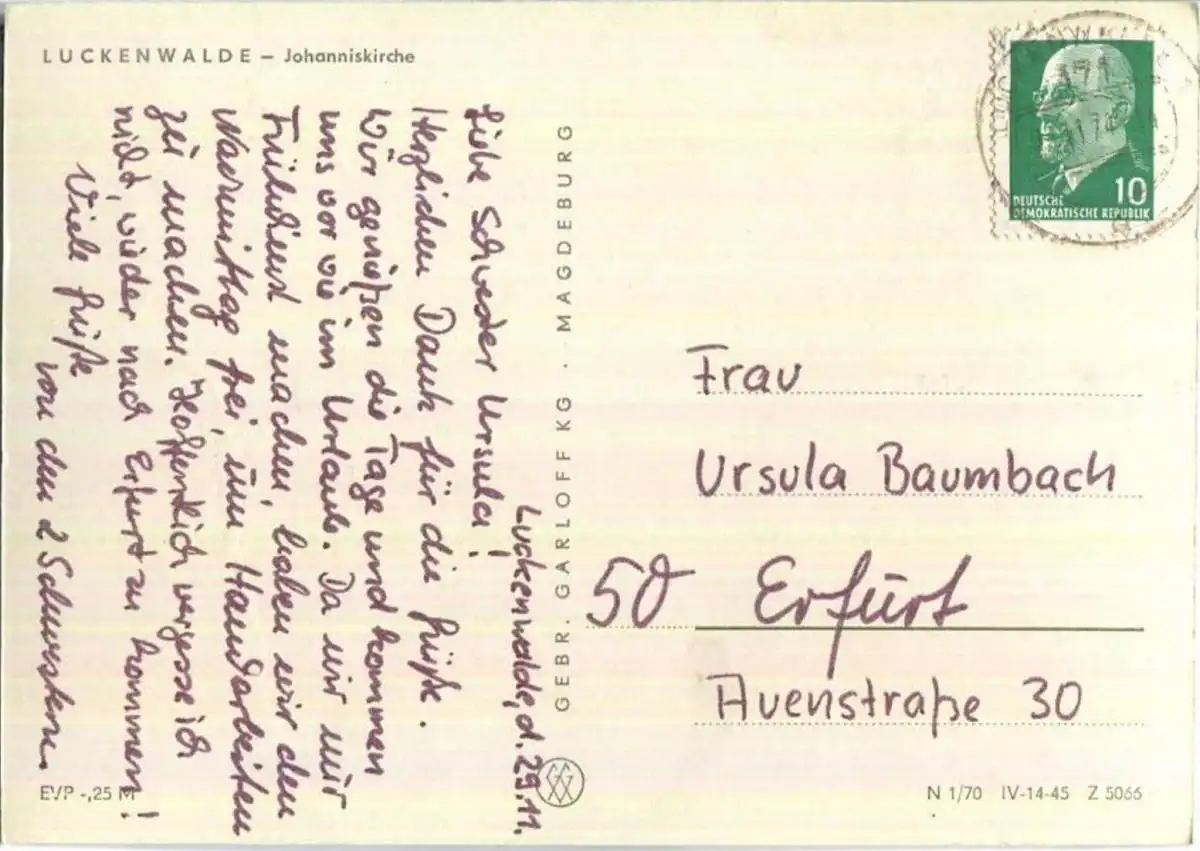 LUCKENWALDE – Johanniskirche
Luckenwalde, d. 29.11.
Liebe Schwester Ursula!
Herzlichen Dank für die Grüße.
Wir genießen die Tage und kommen
uns vor wie im Urlaub. Da wir nur
Frühdienst machen, haben wir den
Nachmittag frei, um Handarbeiten
zu machen. Hoffentlich vergesse ich
nicht, wieder nach Erfurt zu kommen!
Viele Grüße
von den 2 Schwestern
EVP -,25 M
GEBR. GARLOFF KG · MAGDEBURG
DEUTSCHE
DEMOKRATISCHE REPUBLIK
10
Frau
Ursula Baumbach
50 Erfurt
Auenstraße 30
N 1/70 IV-14-45 Z 5066